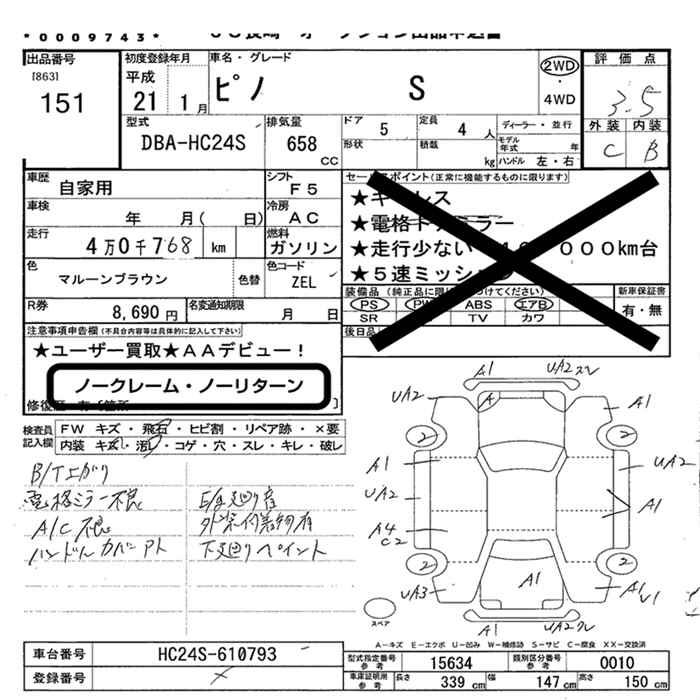 *0009743*
出品番号
[863]
151
初度登録年月
平成
21 1月
車名・グレード
ピノ S
2WD
・
4WD
評価点
3.5
外装 内装
C B
型式
DBA-HC24S
排気量
658 CC
ドア 5
形状
定員 4 人
積載 kg
ディーラー・並行
モデル年式 年
ハンドル 左・右
車歴
自家用
シフト
F5
車検
年 月( 日)
冷房
AC
走行
4万0千768 km
燃料
ガソリン
色
マルーンブラウン
色替
色コード
ZEL
R券
8,690円
名変通知期限
月 日
セールスポイント(正常に機能するものに限ります)
★キーレス
★電格ドアミラー
★走行少ない 000km台
★5速ミッション
装備品(純正品に限り つけてください)
PS PW ABS エアB
SR TV カワ
新車保証書
有・無
後日品
注意事項申告欄(不具合内容等は具体的に記入して下さい)
★ユーザー買取★AAデビュー!
ノークレーム・ノーリターン
修復歴
検査員記入欄
FW キズ・飛石・ヒビ割・リペア跡・×要
内装 キズ・汚レ・コゲ・穴・スレ・キレ・破レ
B/T上がり
電格ミラー不良
A/C不良
ハンドルカバーアト
E/g廻り音
外装付着物有
下廻りペイント
A1 UA2スレ
UA2 A A1
2 2
A1 UA2
UA2 A1
A4
C2
2 2
UA3 A1 A1 V1
A1 UA2クレ
スペア
A-キズ E-エクボ U-凹み W-補修跡 S-サビ C-腐食 XX-交換済
車台番号 HC24S-610793
登録番号
型式指定番号 参考 15634
類別区分番号 参考 0010
車庫証明用 参考 長さ 339 cm 幅 147 cm 高さ 150 cm